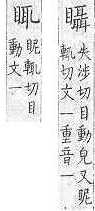 𥍉
失涉切目動皃又昵
輒切文一重音一
昵輒切目
動文一